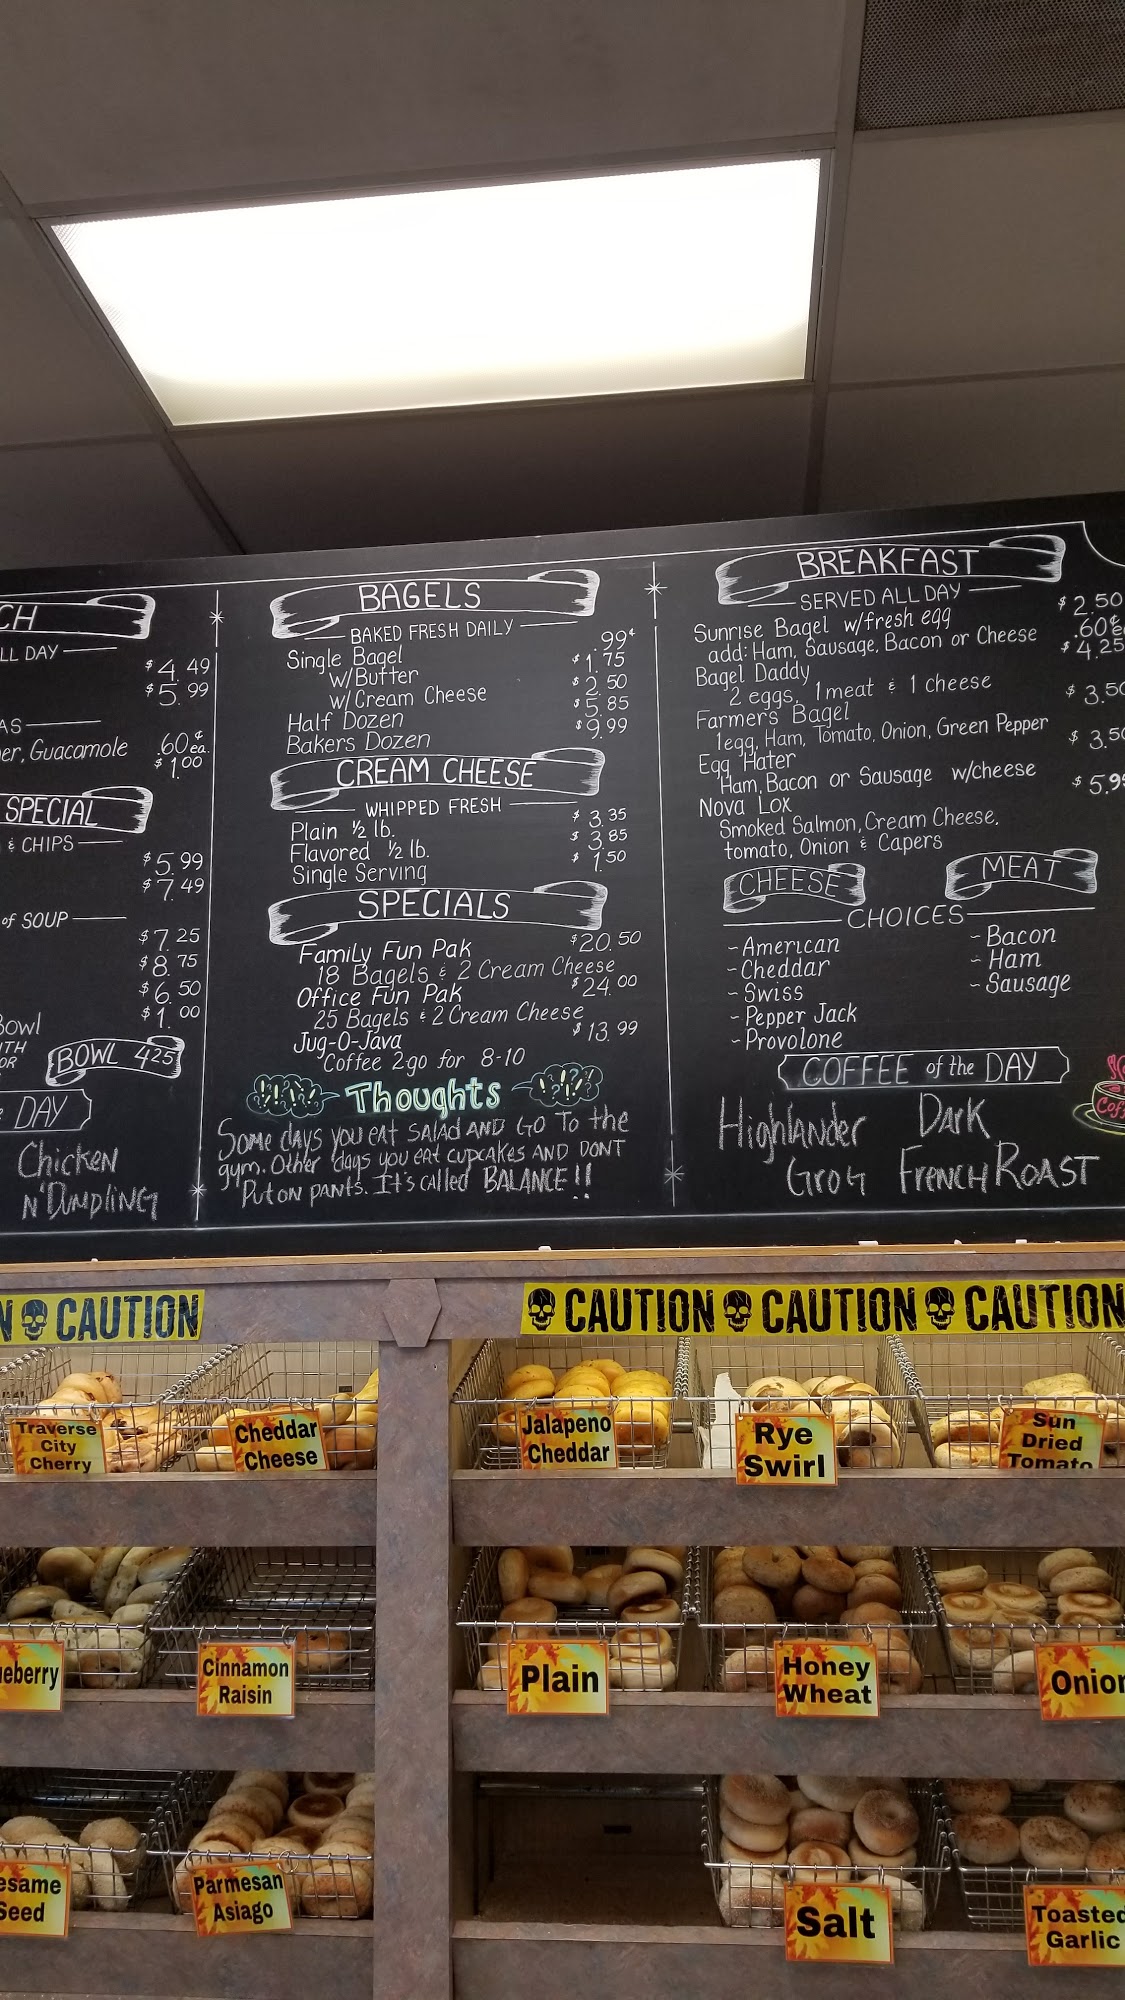 CH
LL DAY
$4.49
$5.99
AS
er, Guacamole .60¢ ea.
$1.00
SPECIAL
& CHIPS
$5.99
$7.49
of SOUP
$7.25
$8.75
$6.50
$1.00
Bowl
ITH
OR
BOWL 4.25
DAY
Chicken
N' DUMPLING
BAGELS
BAKED FRESH DAILY
Single Bagel .99¢
w/Butter $1.75
w/Cream Cheese $2.50
Half Dozen $5.85
Bakers Dozen $9.99
CREAM CHEESE
WHIPPED FRESH
Plain ½ lb. $3.35
Flavored ½ lb. $3.85
Single Serving $1.50
SPECIALS
Family Fun Pak $20.50
18 Bagels & 2 Cream Cheese
Office Fun Pak $24.00
25 Bagels & 2 Cream Cheese
Jug-O-Java $13.99
Coffee 2go for 8-10
Thoughts
Some days you eat SALAD AND GO To the
gym. Other days you eat cupcakes AND DONT
Put on pants. It's called BALANCE!!
BREAKFAST
SERVED ALL DAY
Sunrise Bagel w/fresh egg $2.50
add: Ham, Sausage, Bacon or Cheese .60¢ ea
Bagel Daddy $4.25
2 eggs, 1 meat & 1 cheese
Farmers Bagel $3.50
1egg, Ham, Tomato, Onion, Green Pepper
Egg Hater $3.50
Ham, Bacon or Sausage w/cheese
Nova Lox $5.95
Smoked Salmon, Cream Cheese,
tomato, Onion & Capers
CHEESE MEAT
CHOICES
-American
-Cheddar
-Swiss
-Pepper Jack
-Provolone
-Bacon
-Ham
-Sausage
COFFEE of the DAY
Highlander Grog
Dark FRENCH ROAST
N CAUTION CAUTION CAUTION CAUTION
Traverse
City
Cherry
Cheddar
Cheese
Jalapeno
Cheddar
Rye
Swirl
Sun
Dried
Tomato
ueberry
Cinnamon
Raisin
Plain
Honey
Wheat
Onion
esame
Seed
Parmesan
Asiago
Salt
Toasted
Garlic